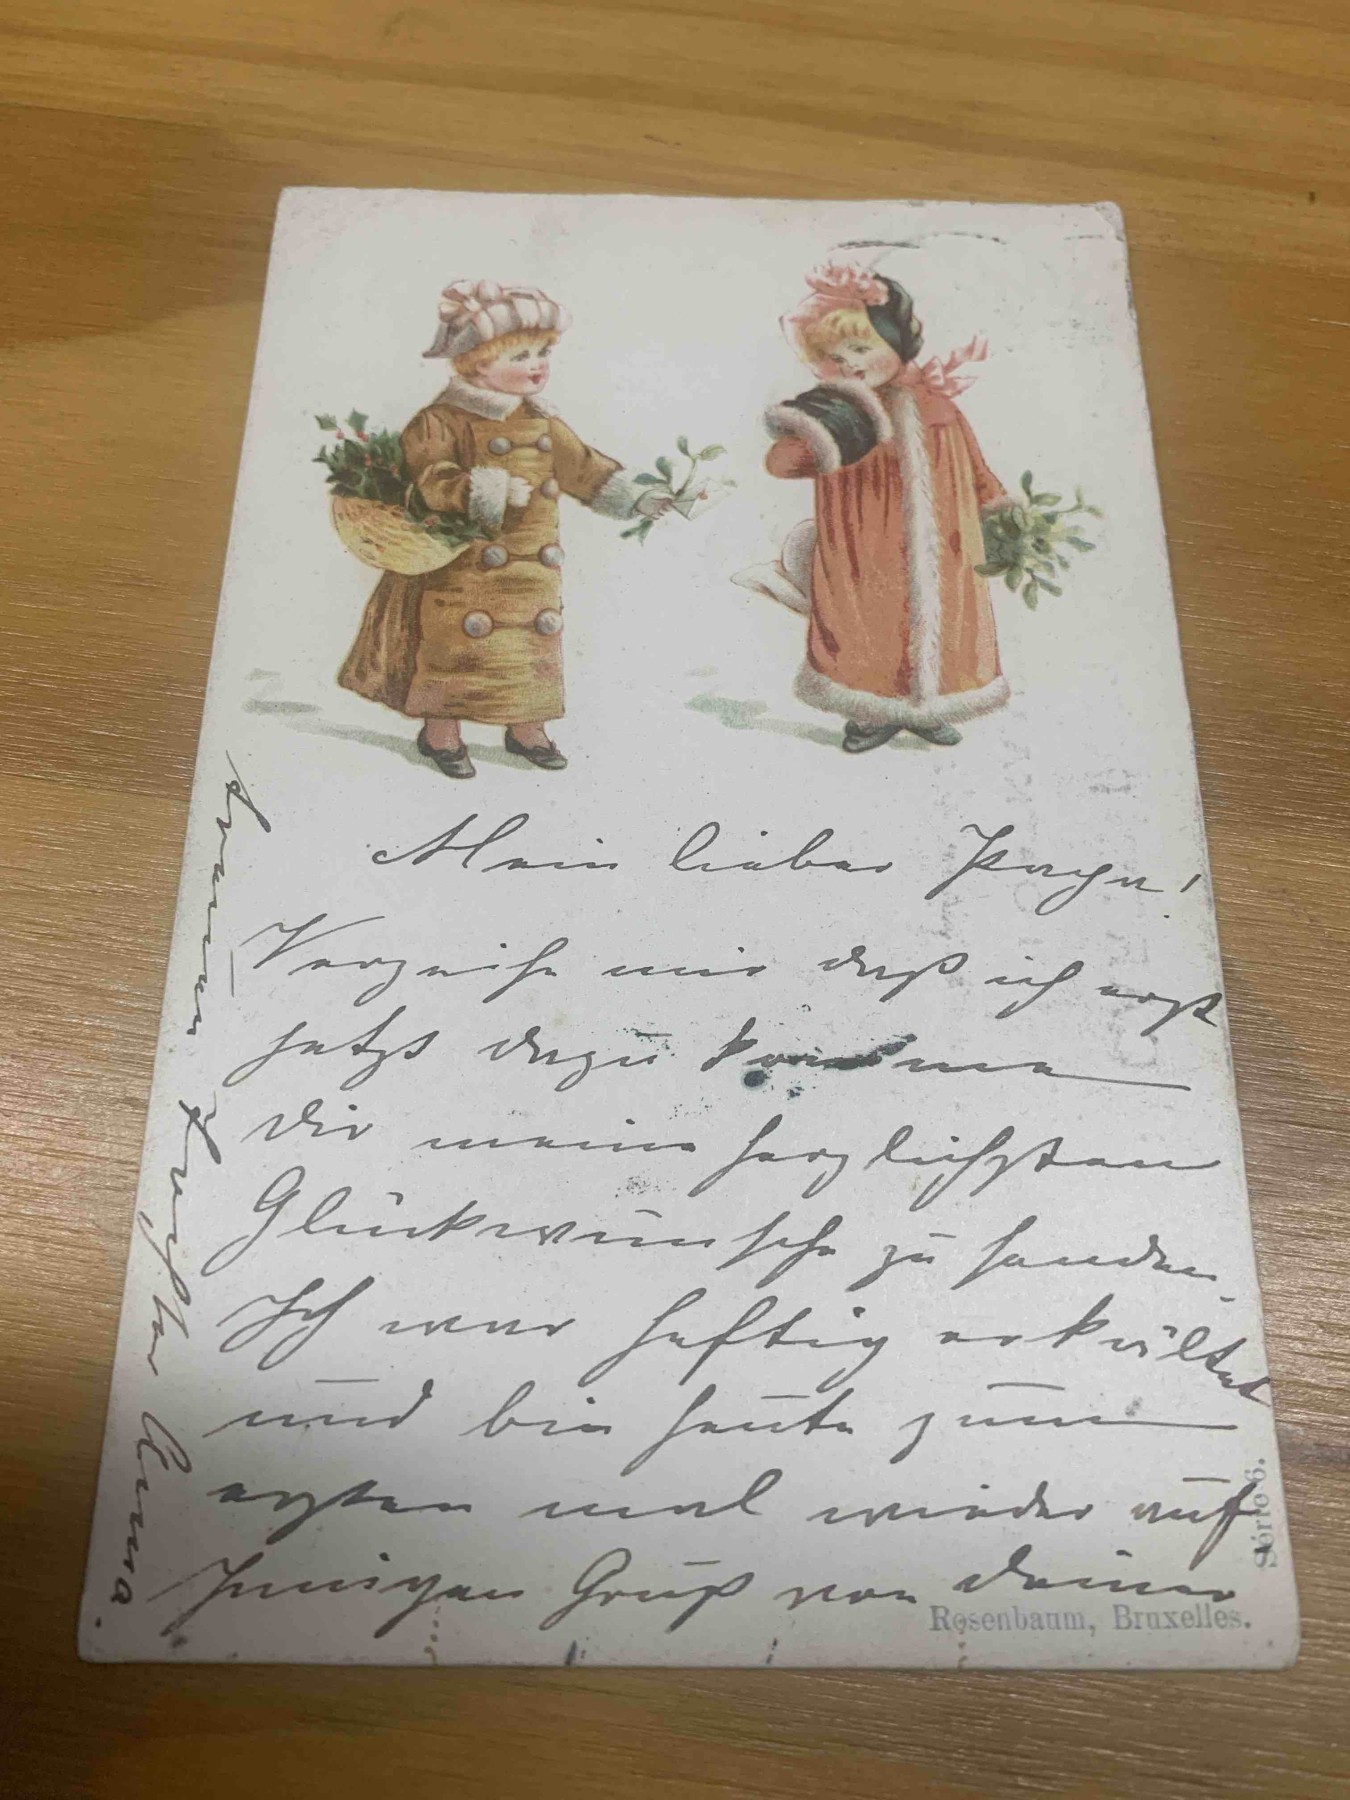 Mein lieber Papa!
Verzeihe mir daß ich erst
jetzt dazu komme
dir meine herzlichsten
Glückwünsche zu senden.
Ich war heftig erkältet
und bin heute zum
ersten mal wieder auf
Innigen Gruß von deiner
treuen Tochter Anna.
Série 6.
Rosenbaum, Bruxelles.